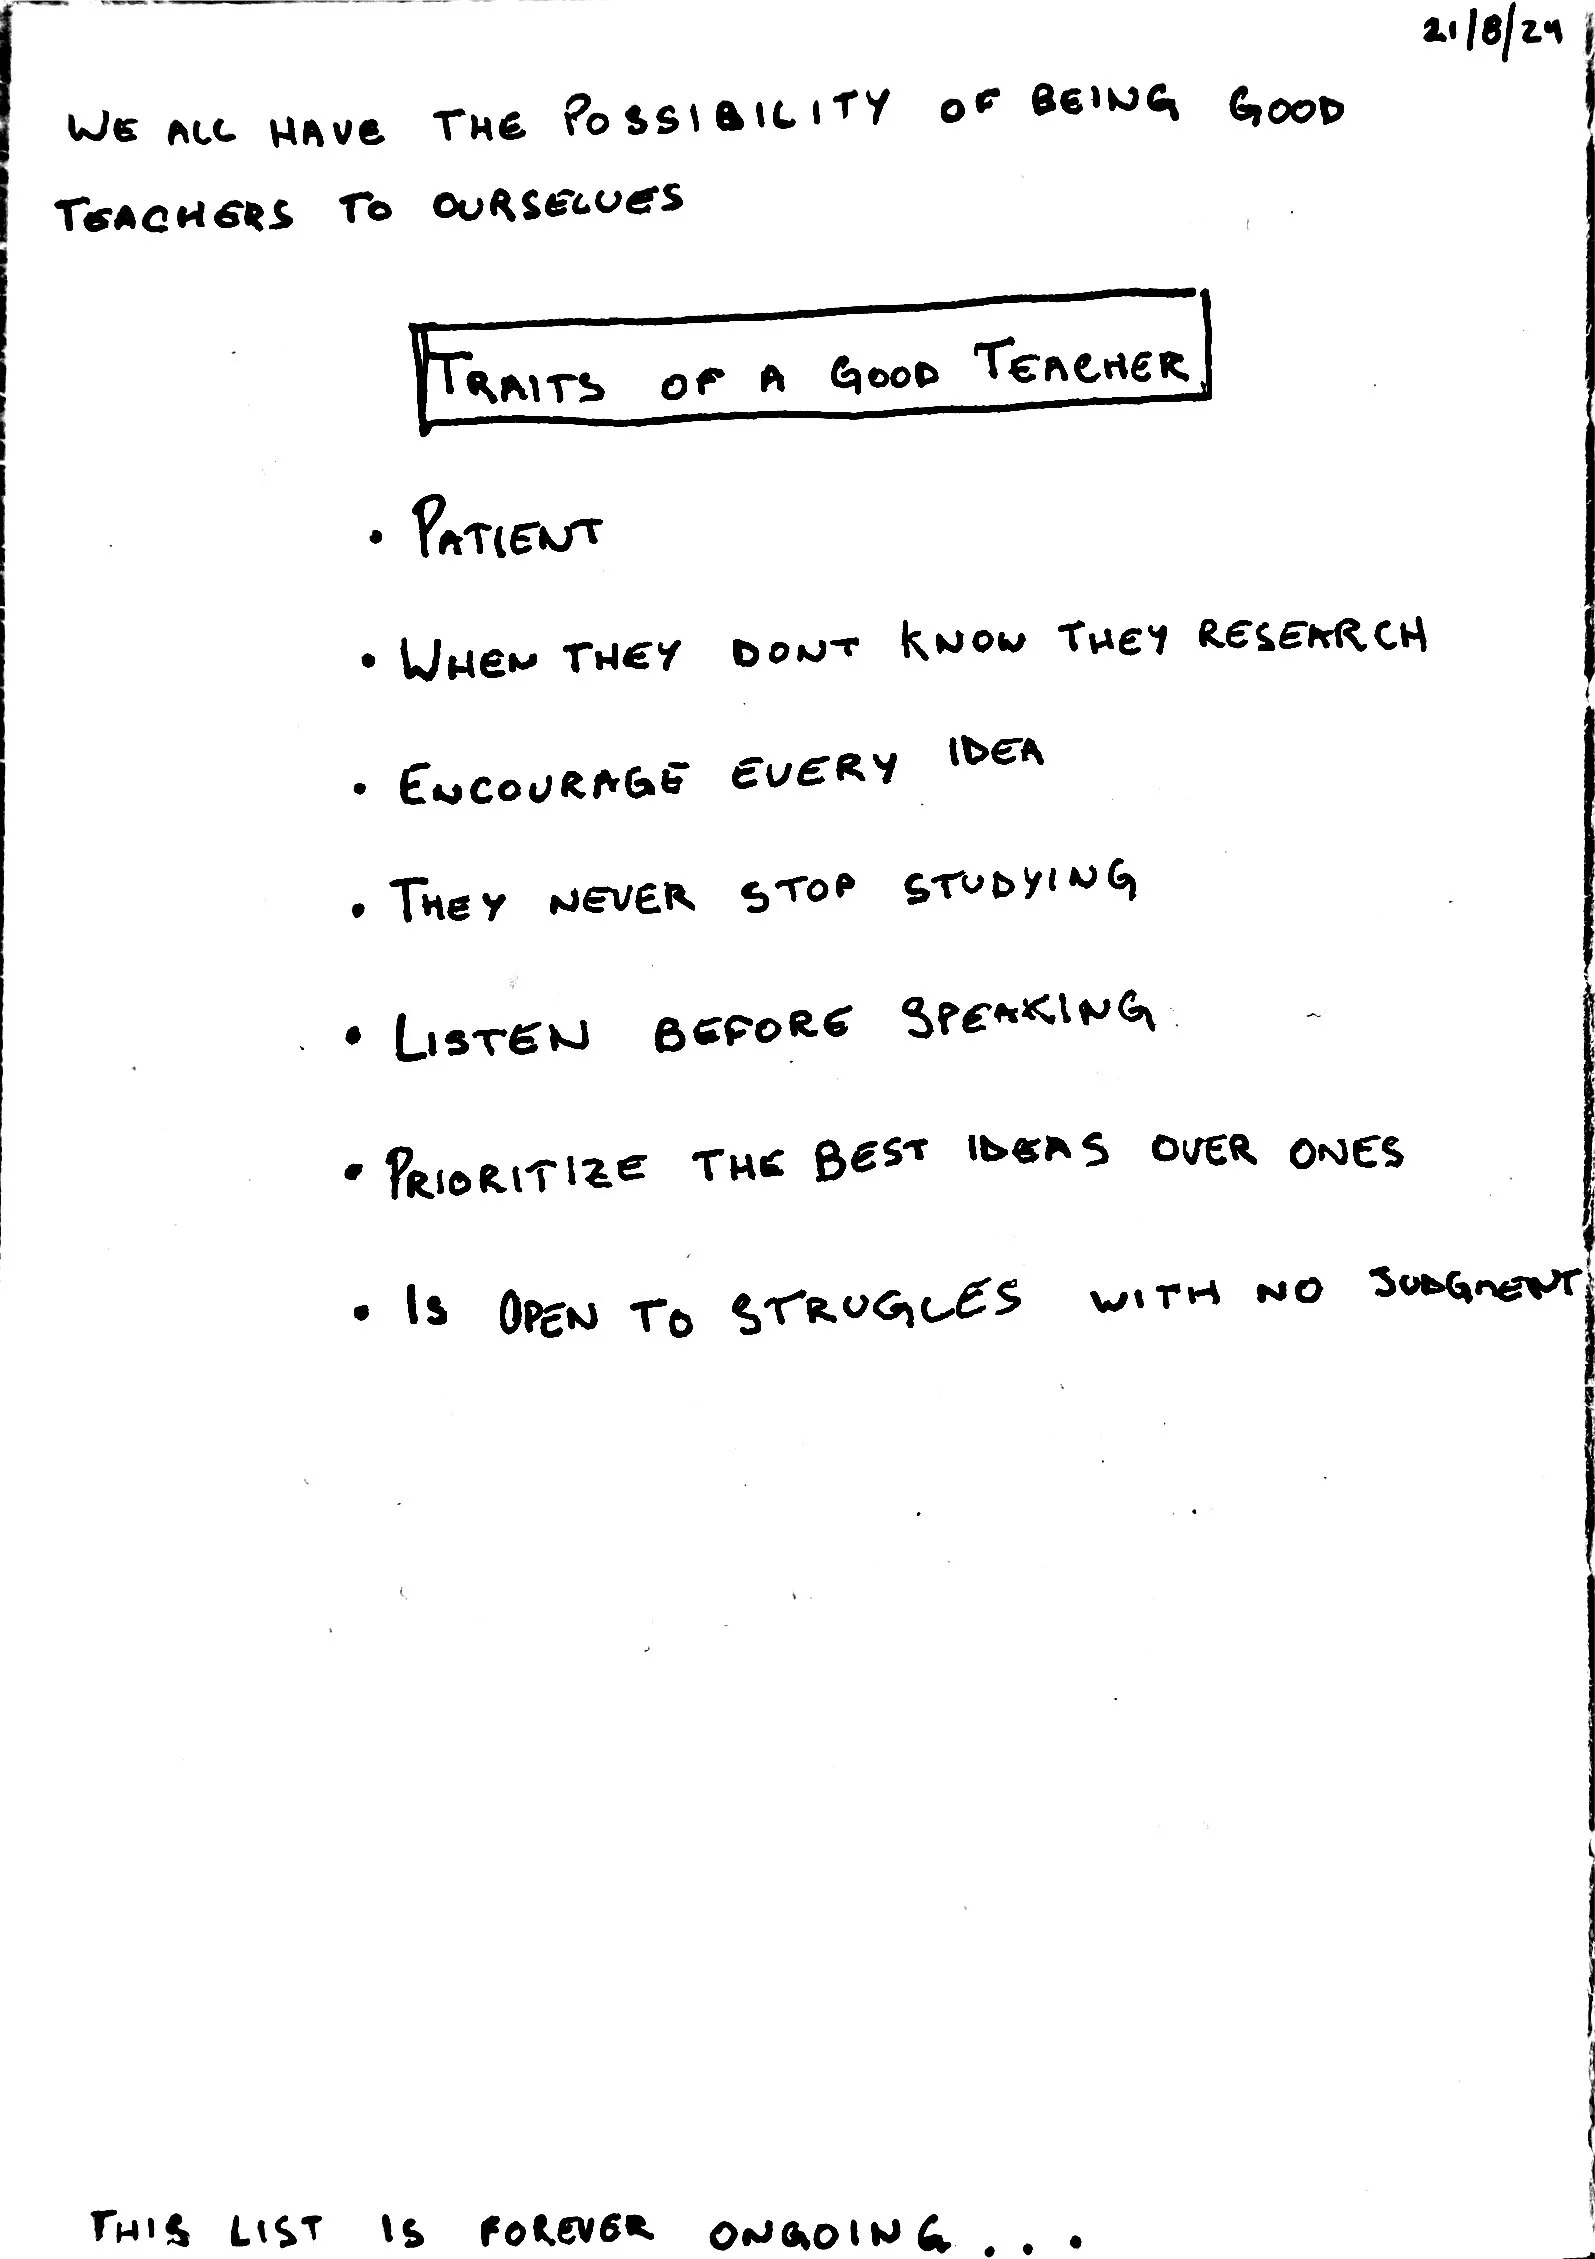 21/8/24
WE ALL HAVE THE POSSIBILITY OF BEING GOOD
TEACHERS TO OURSELVES
TRAITS OF A GOOD TEACHER
• PATIENT
• WHEN THEY DONT KNOW THEY RESEARCH
• ENCOURAGE EVERY IDEA
• THEY NEVER STOP STUDYING
• LISTEN BEFORE SPEAKING
• PRIORITIZE THE BEST IDEAS OVER ONES
• IS OPEN TO STRUGGLES WITH NO JUDGMENT
THIS LIST IS FOREVER ONGOING...